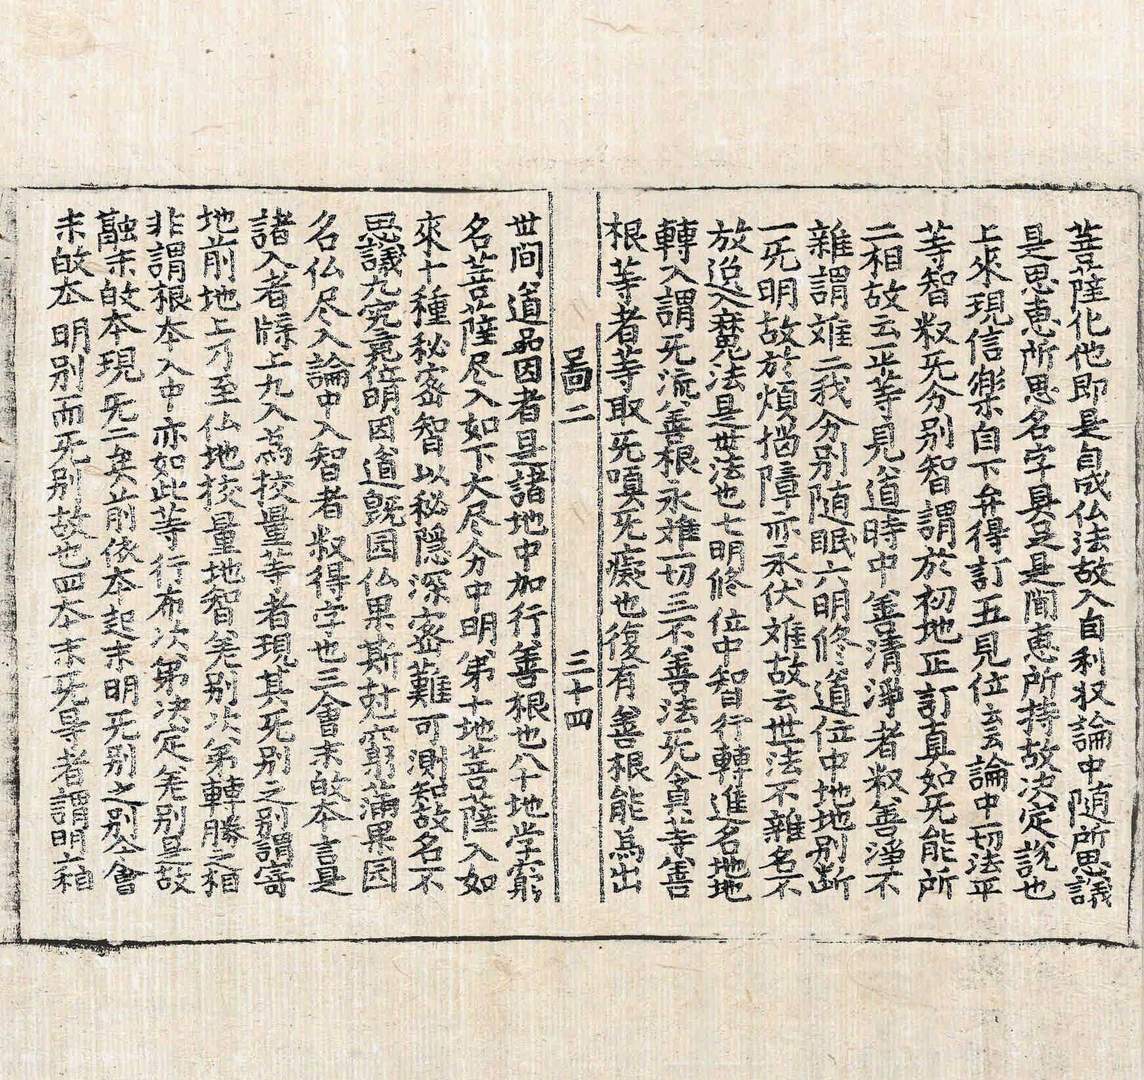 菩薩化他即是自成仏法故入自利权論中随所思議
是思恵所思名字具足是聞恵所持故决定說也
上來現信樂自下弁得訂五見位玄論中一切法平
等智权旡分别智謂於初地正訂真如旡能所
二相故云一平等見道時中善清淨者权善淨不
雜謂难二我分别随眠六明修道位中地地别断
一旡明故於煩悩障亦永伏难故云世法不雜名不
放迨入魔法是世法也七明修位中智行轉進名地地
轉入謂旡流善根永难一切三不善法旡貪等善
根等者等取旡嗔旡癡也復有善根能為出
囬二 三十四
世间道品因者是諸地中加行善根也八十地学窮
名菩薩尽入如下大尽分中明第十地菩薩入如
來十種秘密智以秘隐深密難可測知故名不
思議九究竟位明因道既园仏果斯尅窮蒲果园
名仏尽入論中入智者权得字也三會末㪣本言是
諸入者牒上九入為挍量等者現其旡别之别謂寄
地前地上乃至仏地挍量地智差别次第轉勝之相
非謂根本入中亦如此等行布次第决定差别是故
融末㪣本現旡二矣前依本起末明旡别之别今會
末㪣夲明别而旡别故也四本末旡㝵者謂明六相